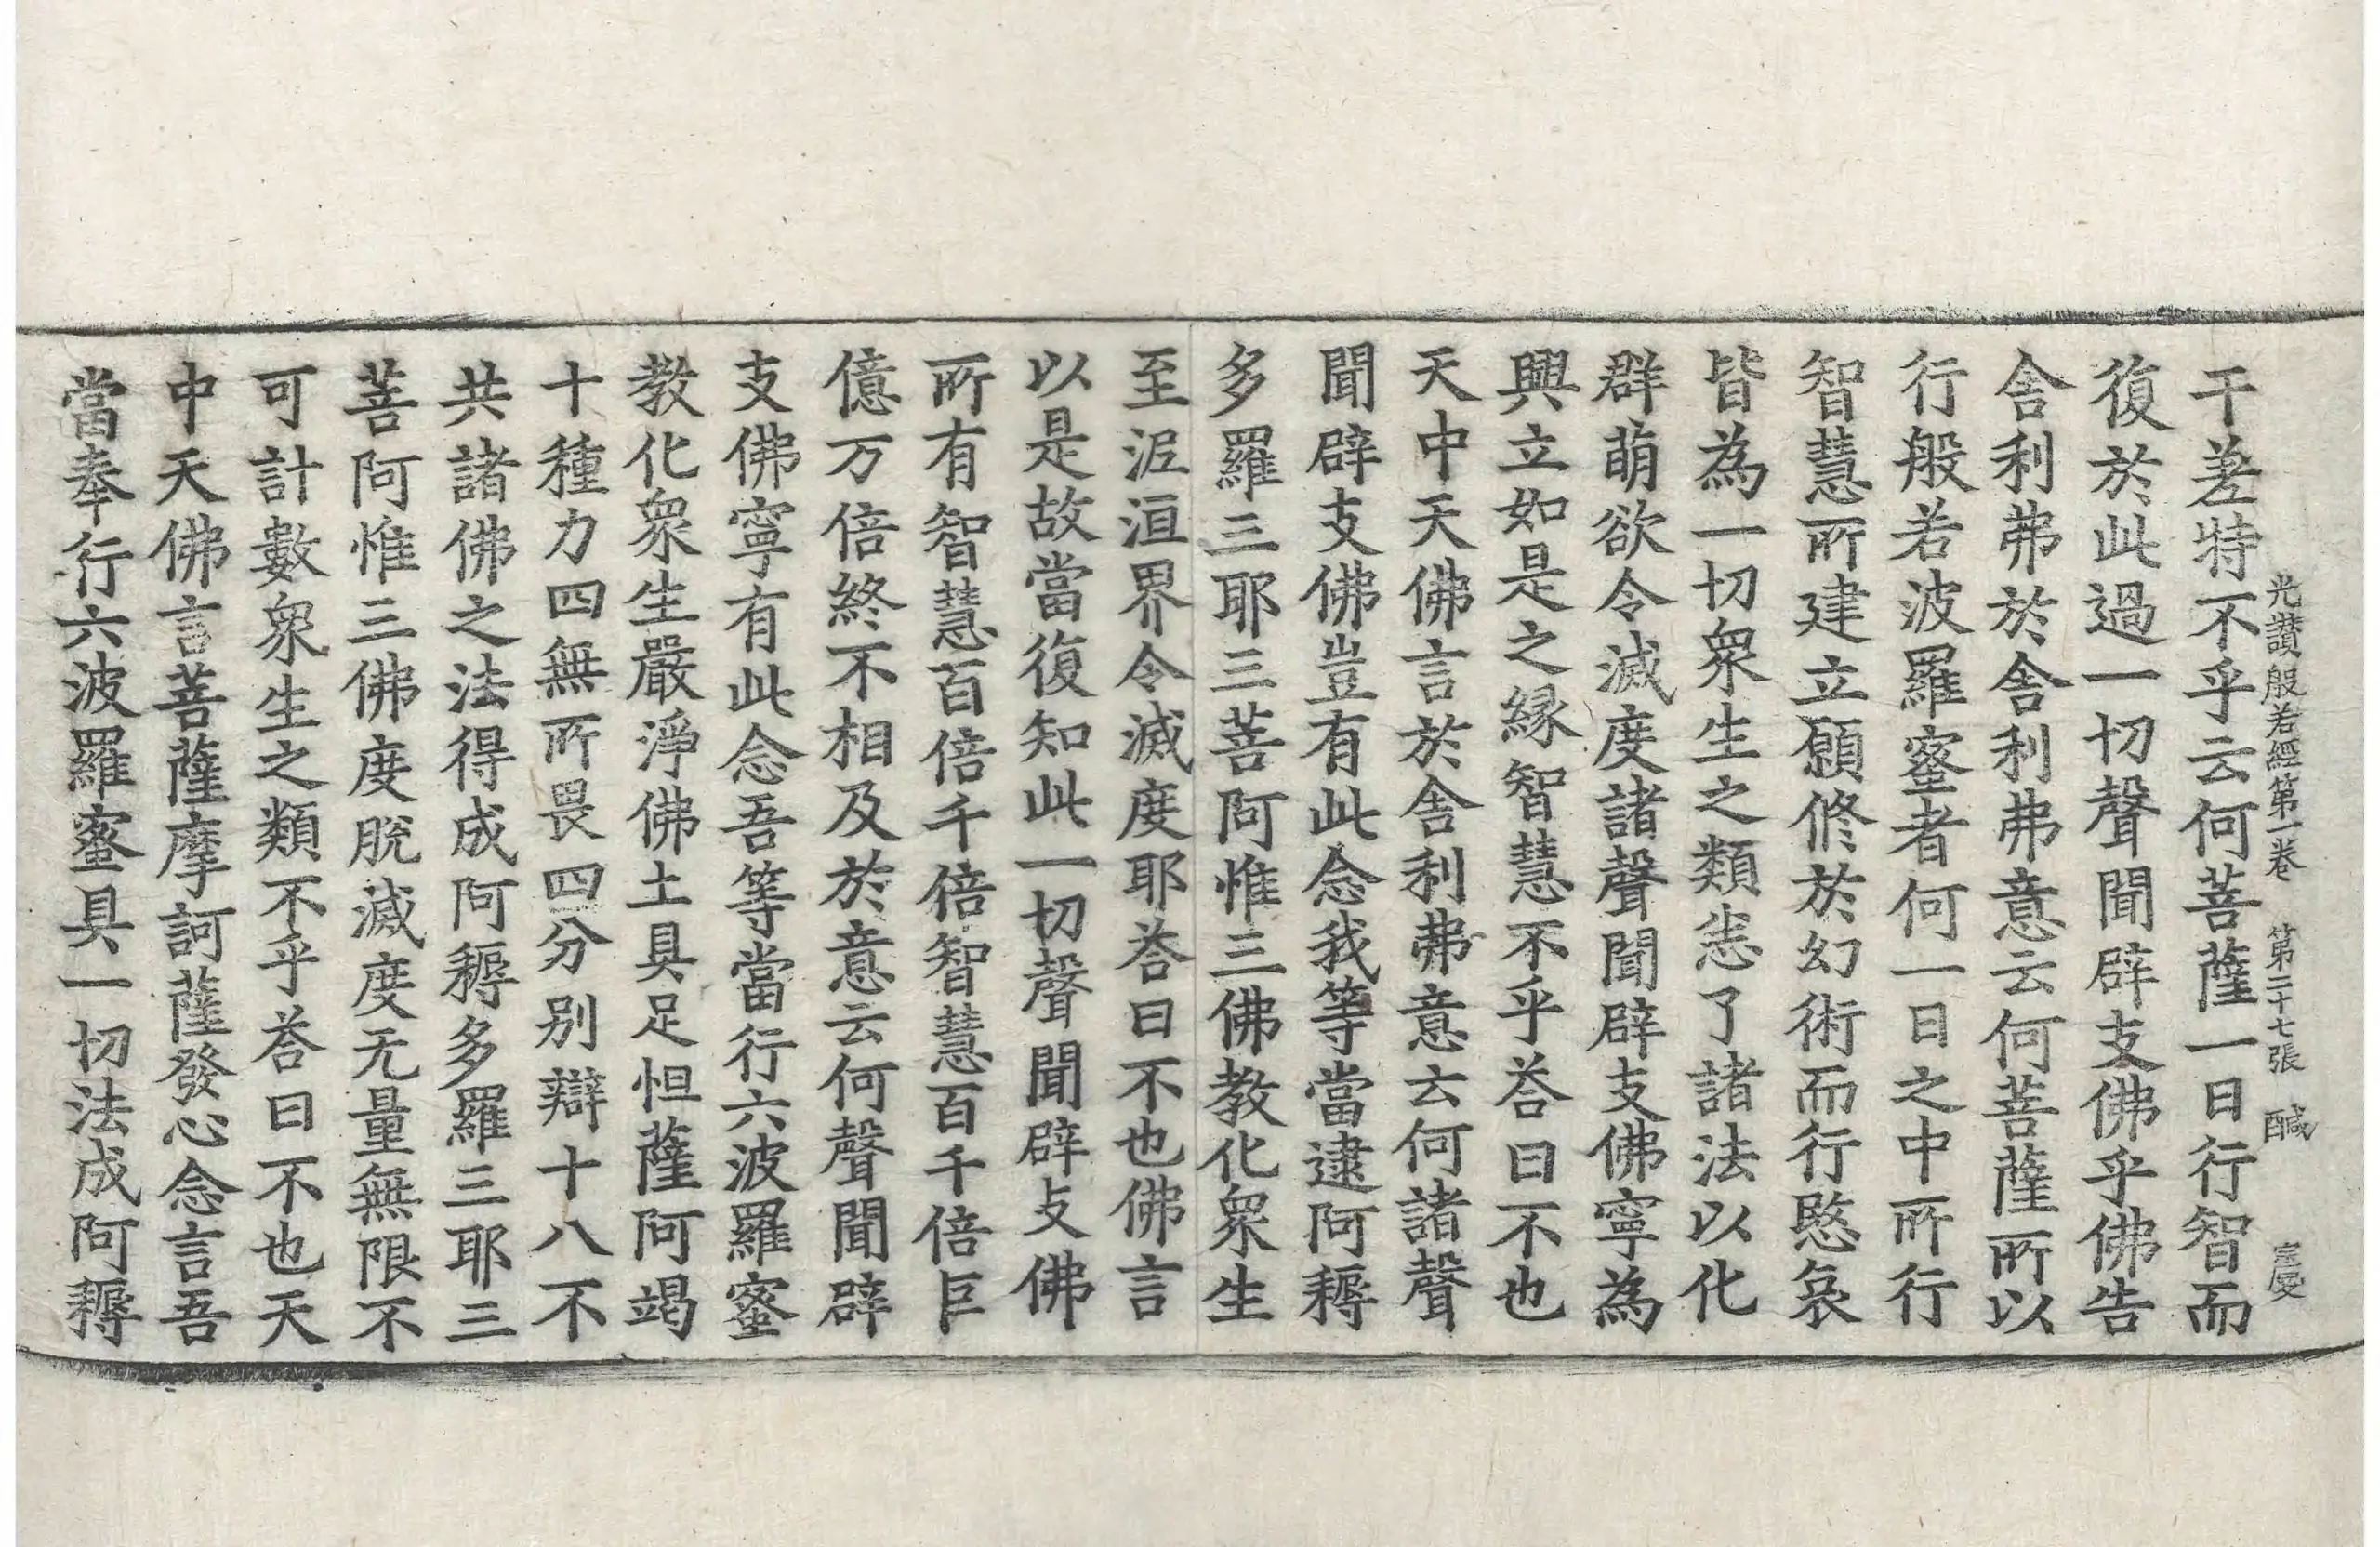 光讃般若經第一卷 第二十七張 醎
干差特不乎云何菩薩一日行智而
復於此過一切聲聞辟支佛乎佛告
舍利弗於舍利弗意云何菩薩所以
行般若波羅蜜者何一日之中所行
智慧所建立願修於幻術而行愍哀
皆為一切衆生之類悉了諸法以化
群萌欲令滅度諸聲聞辟支佛寧為
興立如是之縁智慧不乎荅曰不也
天中天佛言於舍利弗意云何諸聲
聞辟支佛豈有此念我等當逮阿耨
多羅三耶三菩阿惟三佛教化衆生
至泥洹界令滅度耶荅曰不也佛言
以是故當復知此一切聲聞辟支佛
所有智慧百倍千倍智慧百千倍巨
億万倍終不相及於意云何聲聞辟
支佛寧有此念吾等當行六波羅蜜
教化衆生嚴淨佛土具足怛薩阿竭
十種力四無所畏四分別辯十八不
共諸佛之法得成阿耨多羅三耶三
菩阿惟三佛度脫滅度无量無限不
可計數衆生之類不乎荅曰不也天
中天佛言菩薩摩訶薩發心念言吾
當奉行六波羅蜜具一切法成阿耨